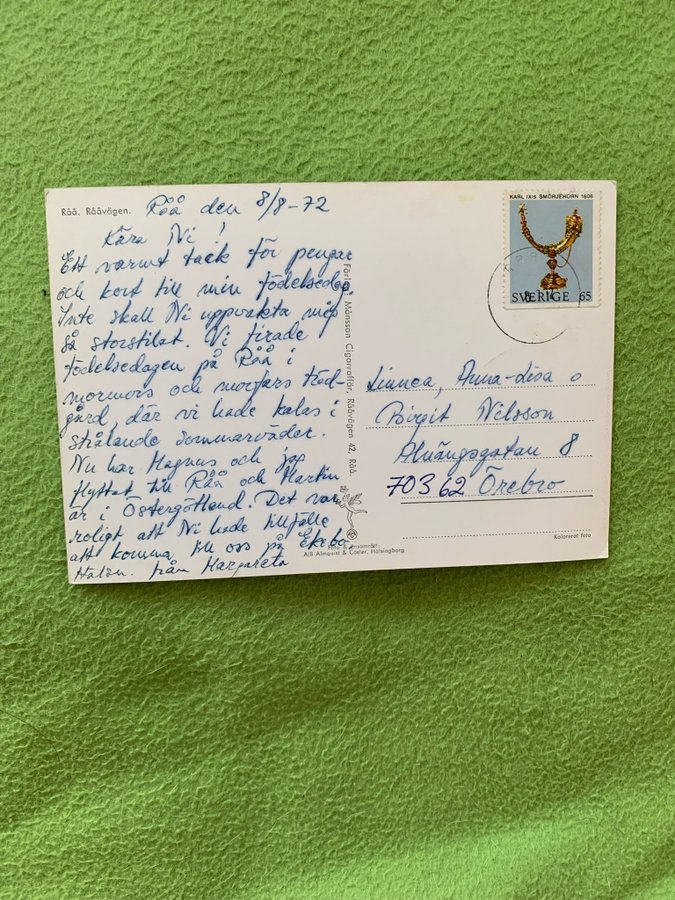 Råå. Rååvägen.
Råå den 8/8-72
Kära Ni!
Ett varmt tack för pengar
och kort till min födelsedag.
Inte skall Ni uppvakta mig
så storstilat. Vi firade
födelsedagen på Råå i
mormors och morfars träd-
gård, där vi hade kalas i
strålande sommarväder.
Nu har Magnus och jag
flyttat till Råå och Martin
är i Östergötland. Det var
roligt att Ni hade tillfälle
att komma till oss på Ekebo.
Hälsn. från Margareta
Förlag: Månsson Cigarraffär, Rååvägen 42, Råå.
Foto & Ensamrätt:
A/B Almquist & Cöster, Hälsingborg
KARL IX:S SMÖRJEHORN 1606
SVERIGE 65
Linnea, Anna-Lisa o
Birgit Nilsson
Älvängsgatan 8
703 62 Örebro
Kolorerat foto